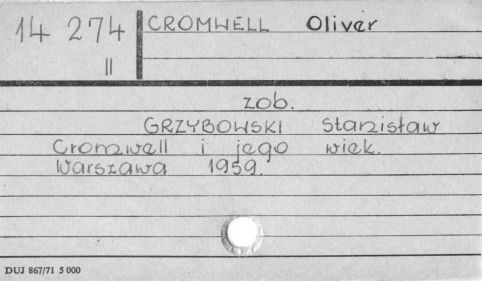 14 274 CROMWELL Oliver
II
zob.
GRZYBOWSKI Stanisław
Cromwell i jego wiek.
Warszawa 1959.
DUJ 867/71 5 000